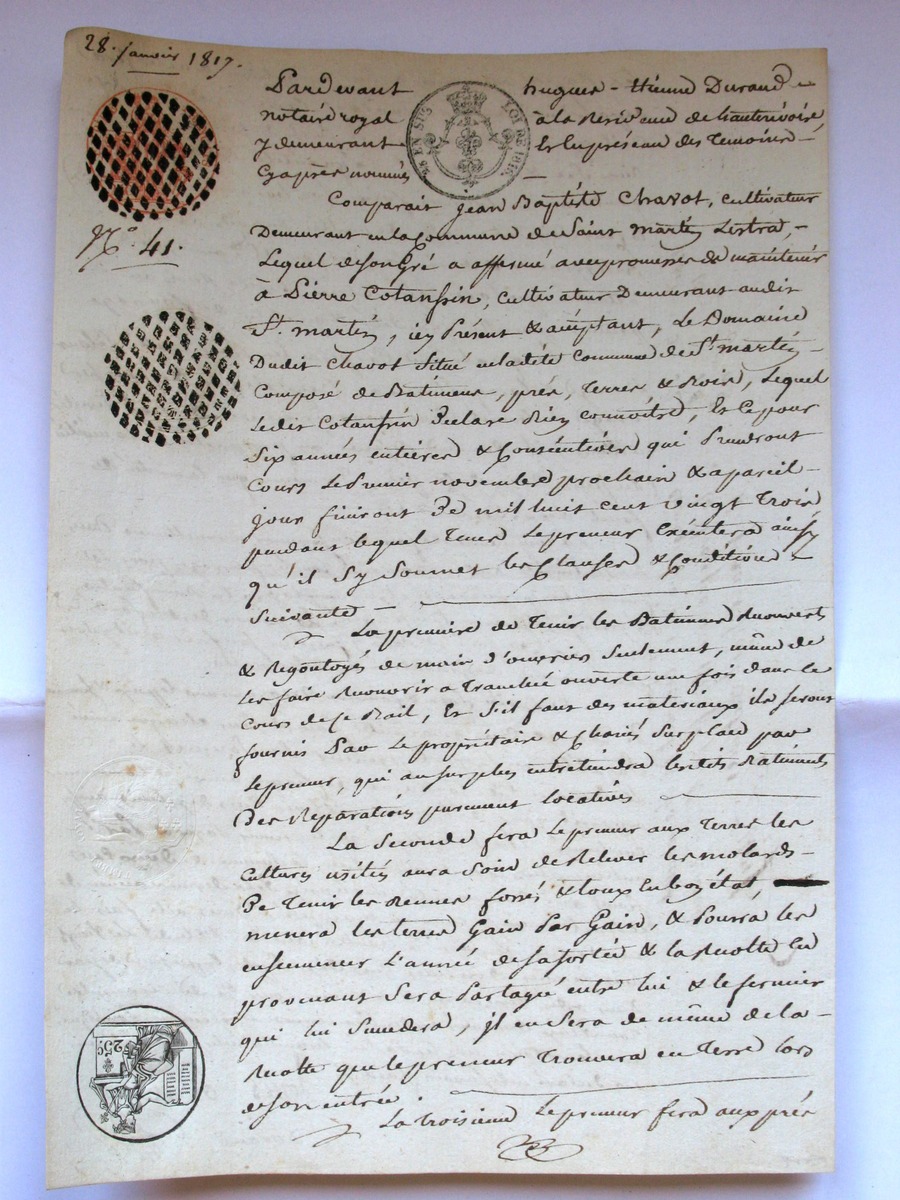 28. janvier 1817.
Pardevant hugues - Etienne Durand
notaire royal à la Residence de hauterivoire
y demeurant Et En présence des Temoins
Cy après nommés
N.° 41.
Comparait Jean Baptiste Chavot, cultivateur
Demeurant en la Commune de Saint martin Lestra,
Lequel de son Gré a affermé avec promesse de maintenir
à Pierre Cotansin, cultivateur Demeurant audit
St. martin, icy Présent & acceptant, Le Domaine
Dudit Chavot Situé en ladite Commune de St. martin
Composé de Batimens, prés, Terres & Bois, Lequel
Ledit Cotansin Declare Bien connoitre, Et Ce pour
Six années entières & Consécutives qui Prendront
Cours Le Premier novembre prochain & a pareil
jour finiront De mil huit cent vingt Trois
pendant lequel Tems Le preneur Exécutera ainsy
qu'il S'y Soumet les Clauses & Conditions
Suivantes
La premiere de Tenir les Batimens Recouverts
& Regontoyés de main d'ouvries Seulement, même de
les faire Recouvrir a Tranchée ouverte une fois dans le
Cours de Ce Bail, Et S'il faut des materiaux ils Seront
fournis Par Le propriétaire & Chariés Sur place par
Le preneur, qui au Surplus entretiendra lesdits Batiments
Des Reparations purement locatives
La Seconde fera Le preneur aux Terres les
Cultures usités aura Soin de Relever les molards
De Tenir les fossés en bon état,
menera les terres Gain Par Gain, & Pourra les
ensemencer L'année de sa Sortie & la Recolte En
provenant Sera Partagée entre lui & le fermier
qui lui Succedera, il en Sera de même de la
Recolte que le preneur Trouvera en Terre lors
de son entrée.
La troisieme Le preneur fera aux prés
25c